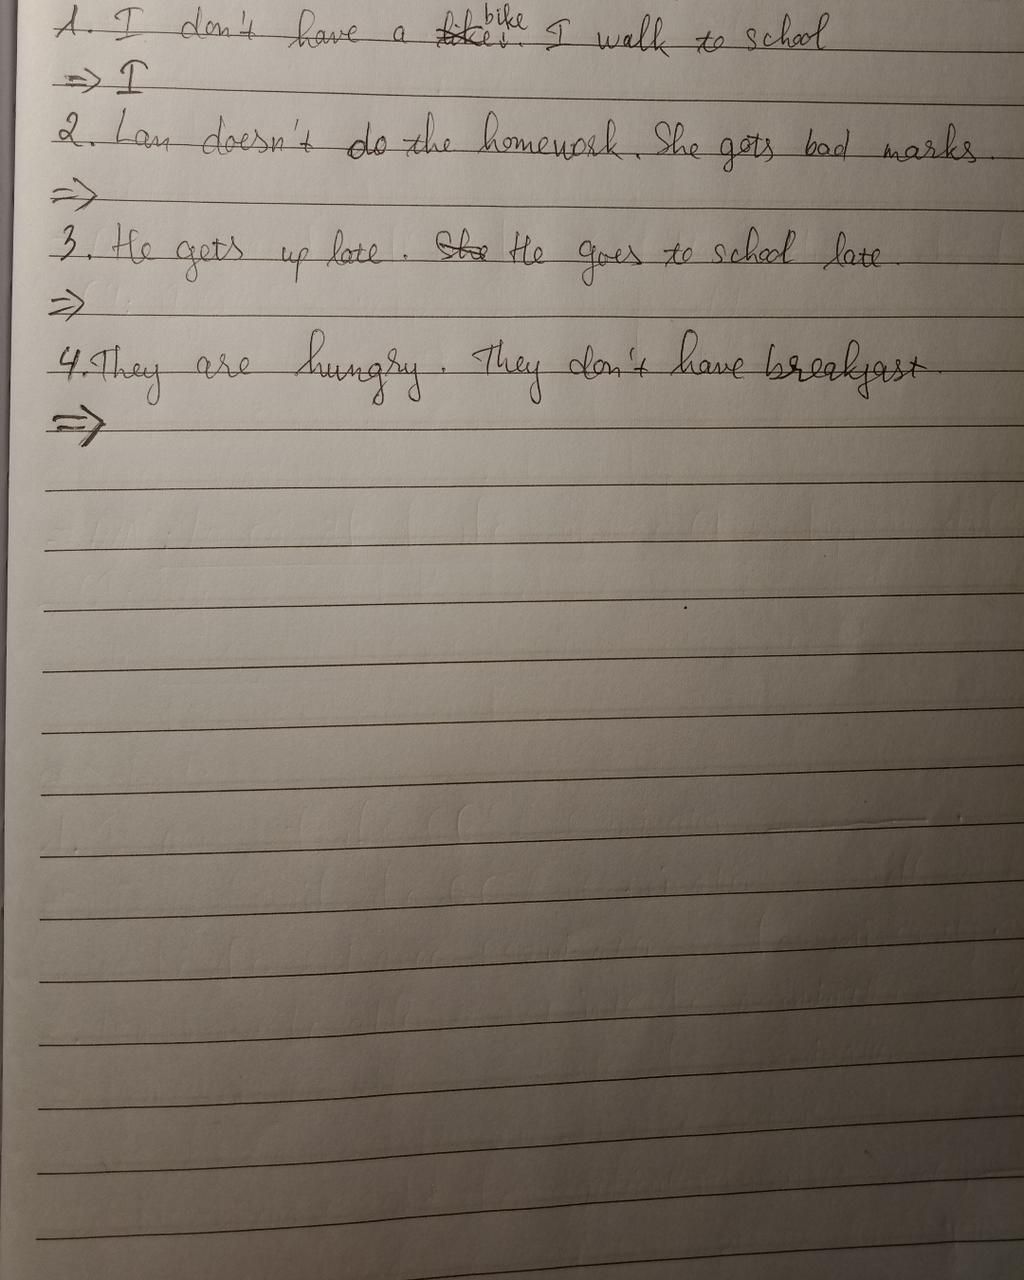 1. I don't have a bike. I walk to school
=> I
2. Lan doesn't do the homework. She gets bad marks.
=>
3. He gets up late. He goes to school late.
=>
4. They are hungry. They don't have breakfast.
=>